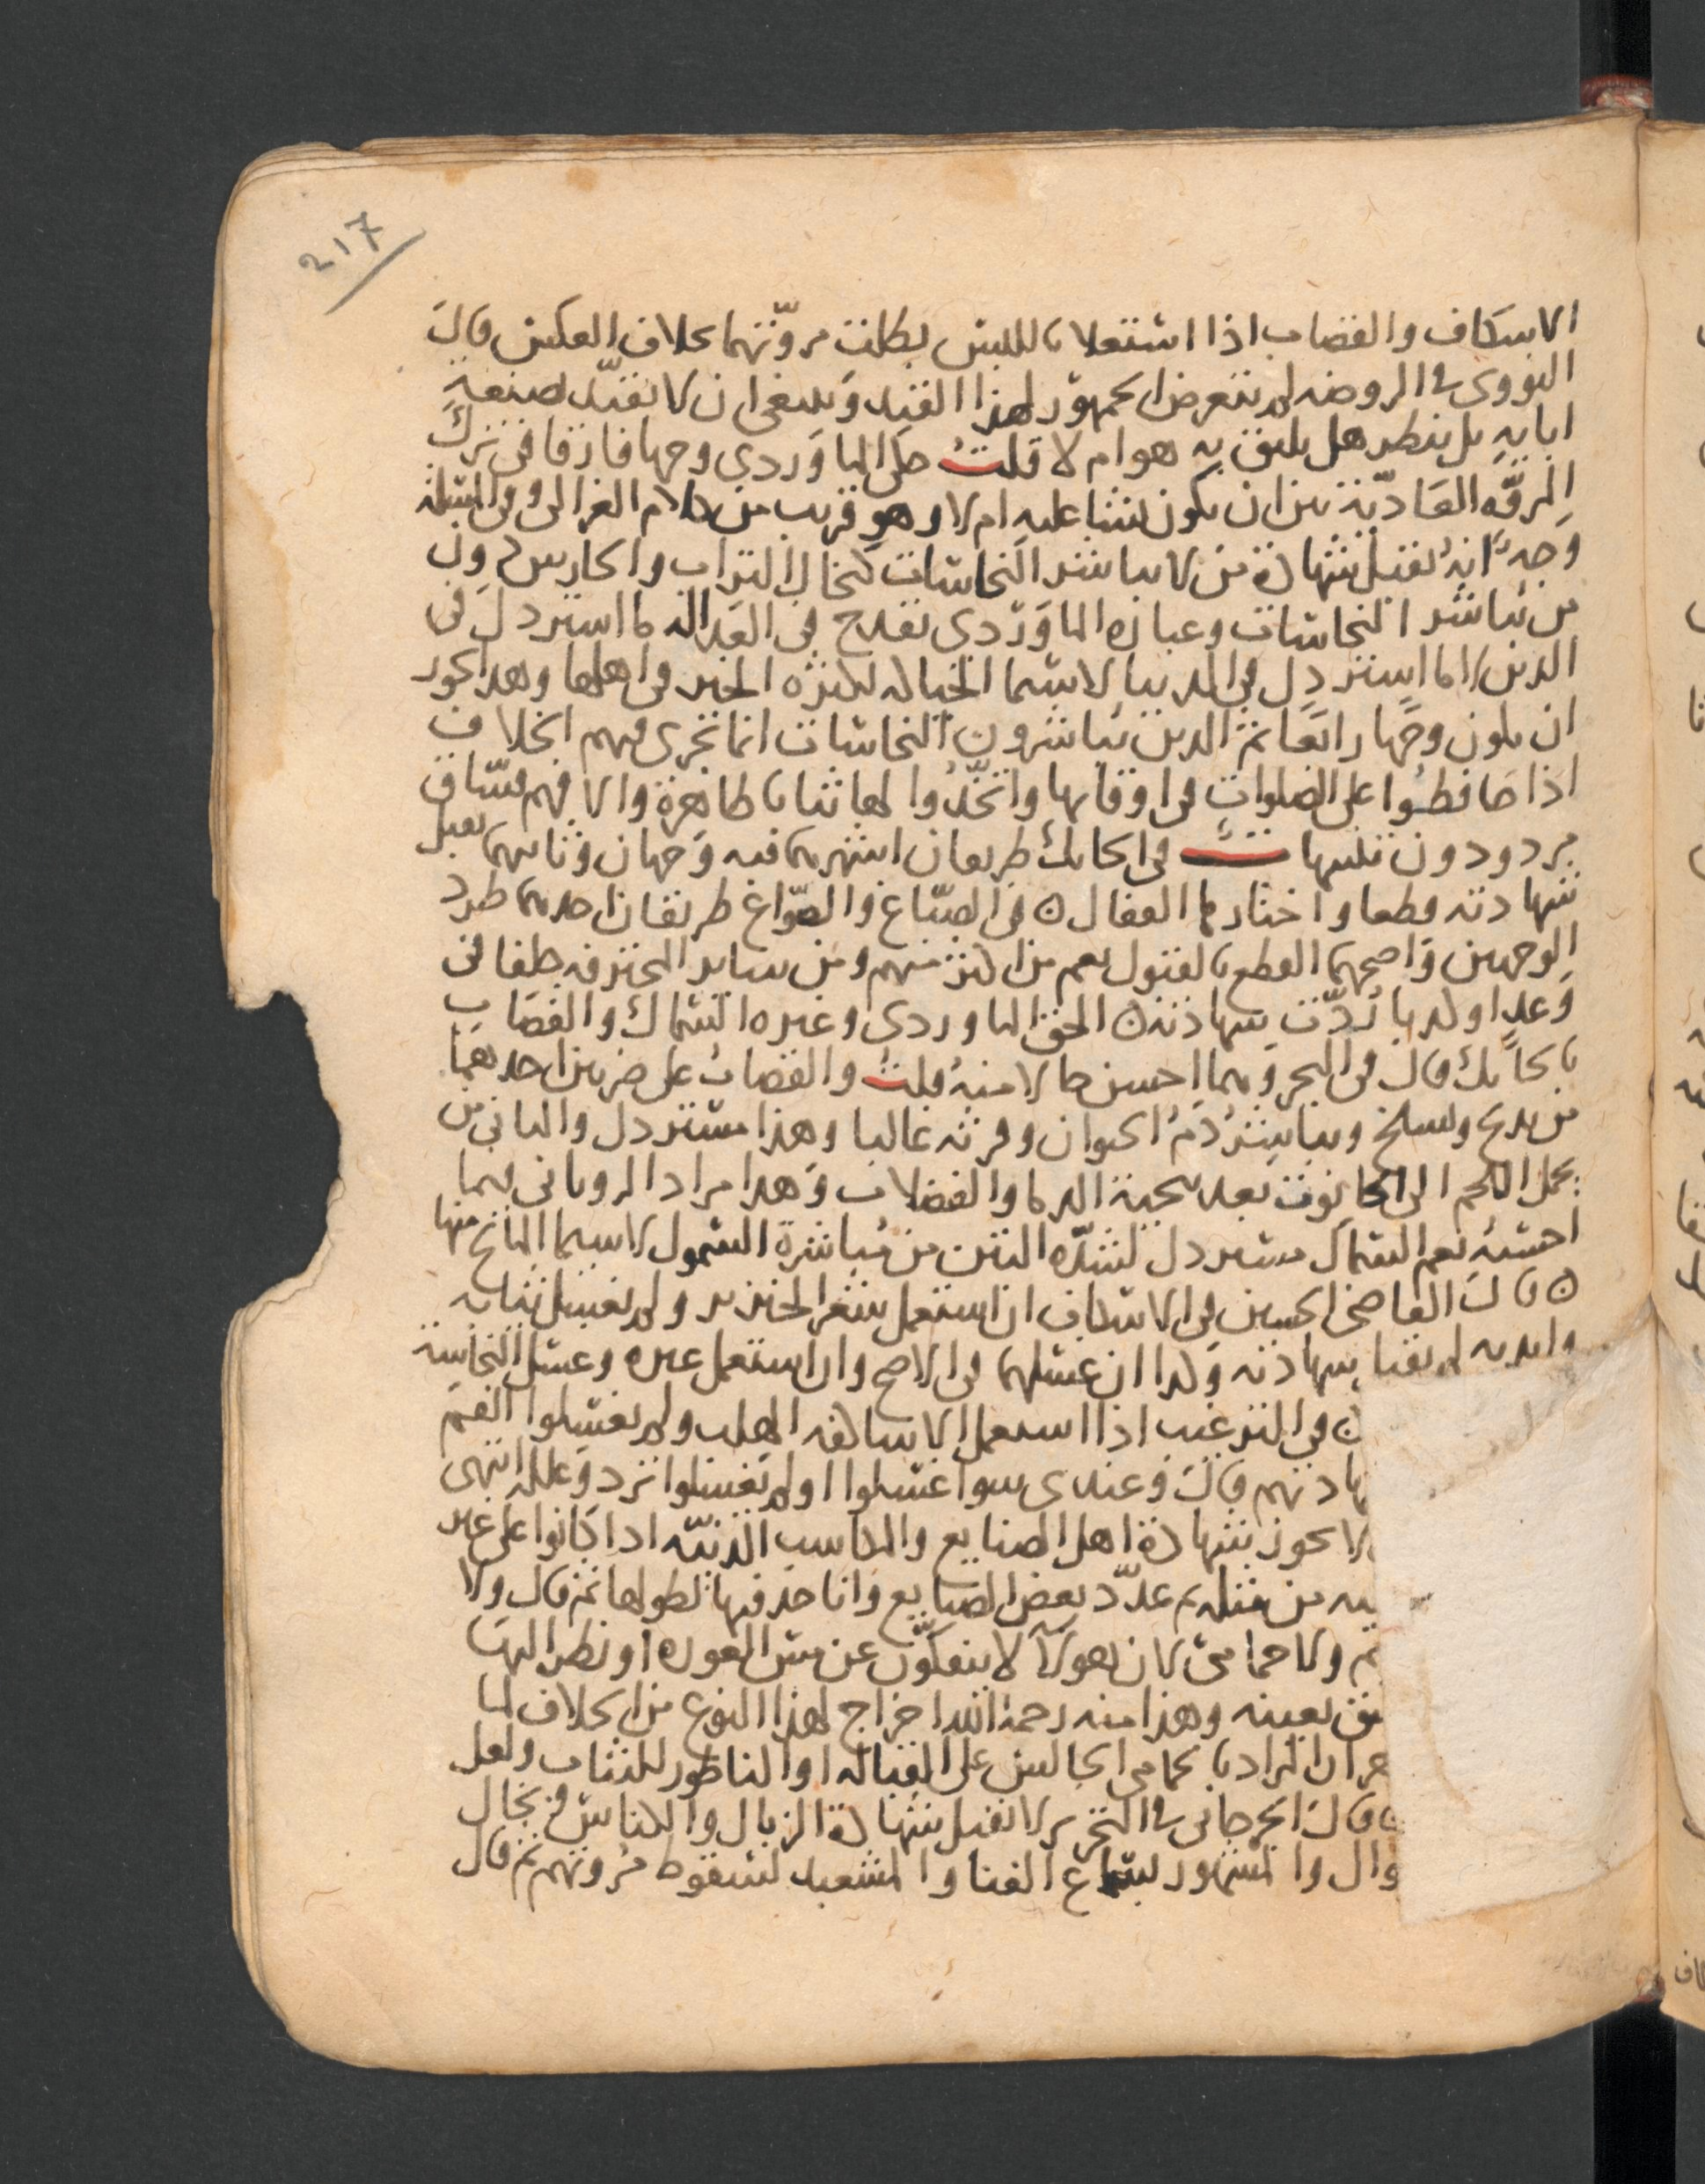 217
الاسكاف والقصاب اذا اشتغلا بالكنس بطلت مروّتهما بخلاف العكس قال
النووى في الروضه لم يتعرض الجمهور لهذا القيد وينبغى ان لا يقيّد بصنعة
ابايه بل ينظر هل يليق به هو ام لا قلت حكى الماوردي وجها فارقا في ترك
المروّه العاديّة بين ان يكون نشا عليه ام لا وهو قريب من كلام الغزالى وفى المسئلة
وجه انه تقبل شهادة من لا يباشر النجاسات كنخال التراب والحارس دون
من يباشر النجاسات وعبارة الماوردى تقدح في العداله ما استرذل في
الدين اما ما استرذل في الدنيا لاسيما الحياكه لكثرة الخير في اهلها وهذا يجوز
ان يكون وجها رابعا ثم الذين يباشرون النجاسات انما تجرى فيهم الخلاف
اذا حافظوا على الصلوات في اوقاتها واتخذوا لها ثيابا طاهرة والا فهم فسّاق
مردودون تنبيهات في الحائك طريقان اشهرهما فيه وجهان وثانيهما تقبل
شهادته قطعا واختارها القفال ن في الصبّاغ والصوّاغ طريقان احدهما طرد
الوجهين واصحهما القطع بالقبول نعم من اكثر منهم ومن ساير المحترفه حلفا في
وعد او كذبا رُدّت شهادته ن الحق الماوردى وغيره السماك والقصاب
بالحائك قال في البحر وهما احسن حالا منه قلت والقصاب على ضربين احدهما
من يذبح ويسلخ ويباشر دم الحيوان وفرثه غالبا وهذا مسترذل والثاني من
يحمل اللحم الى الحانوت بعد تنحية الدما والفضلات وهذا مراد الرويانى فيما
احسبه نعم السماك مسترذل لشدّه النتن من مباشرة السموك لاسيما المالح منها
ن قال القاضى الحسين في الاسكاف ان استعمل شعر الخنزير ولم يغسل ثيابه
وابدنه لم تقبل شهادته وكذا ان غسلهما في الاصح وان استعمل غيره وغسل النجاسة
ن في الترغيب اذا استعمل الاساكفه الهلب ولم يغسلوا الفم
هادتهم قال وعندى سوا غسلوا او لم يغسلوا ترد وعلله انتهى
لا تجوز شهادة اهل الصنايع والمكاسب الدنيّه اذا كانوا على غير
يه من مثلهم عدّد بعض الصنايع وانا حذفها لطولها ثم قال ولا
م ولا حمامى لان هولآ لا ينفكون عن مس العوره او نظر اليها
سق بعينه وهذا منه رحمه الله اخراج لهذا النوع من الخلاف لما
هر ان المراد بالحمامى الجالس على القباله او الناطور للثياب ولعل
ن قال الجرجانى في التحرير لا تقبل شهادة الزبال والكناس ونخال
وال والمشهور بسماع الغنا والمشعبذ لسقوط مروتهم ثم قال